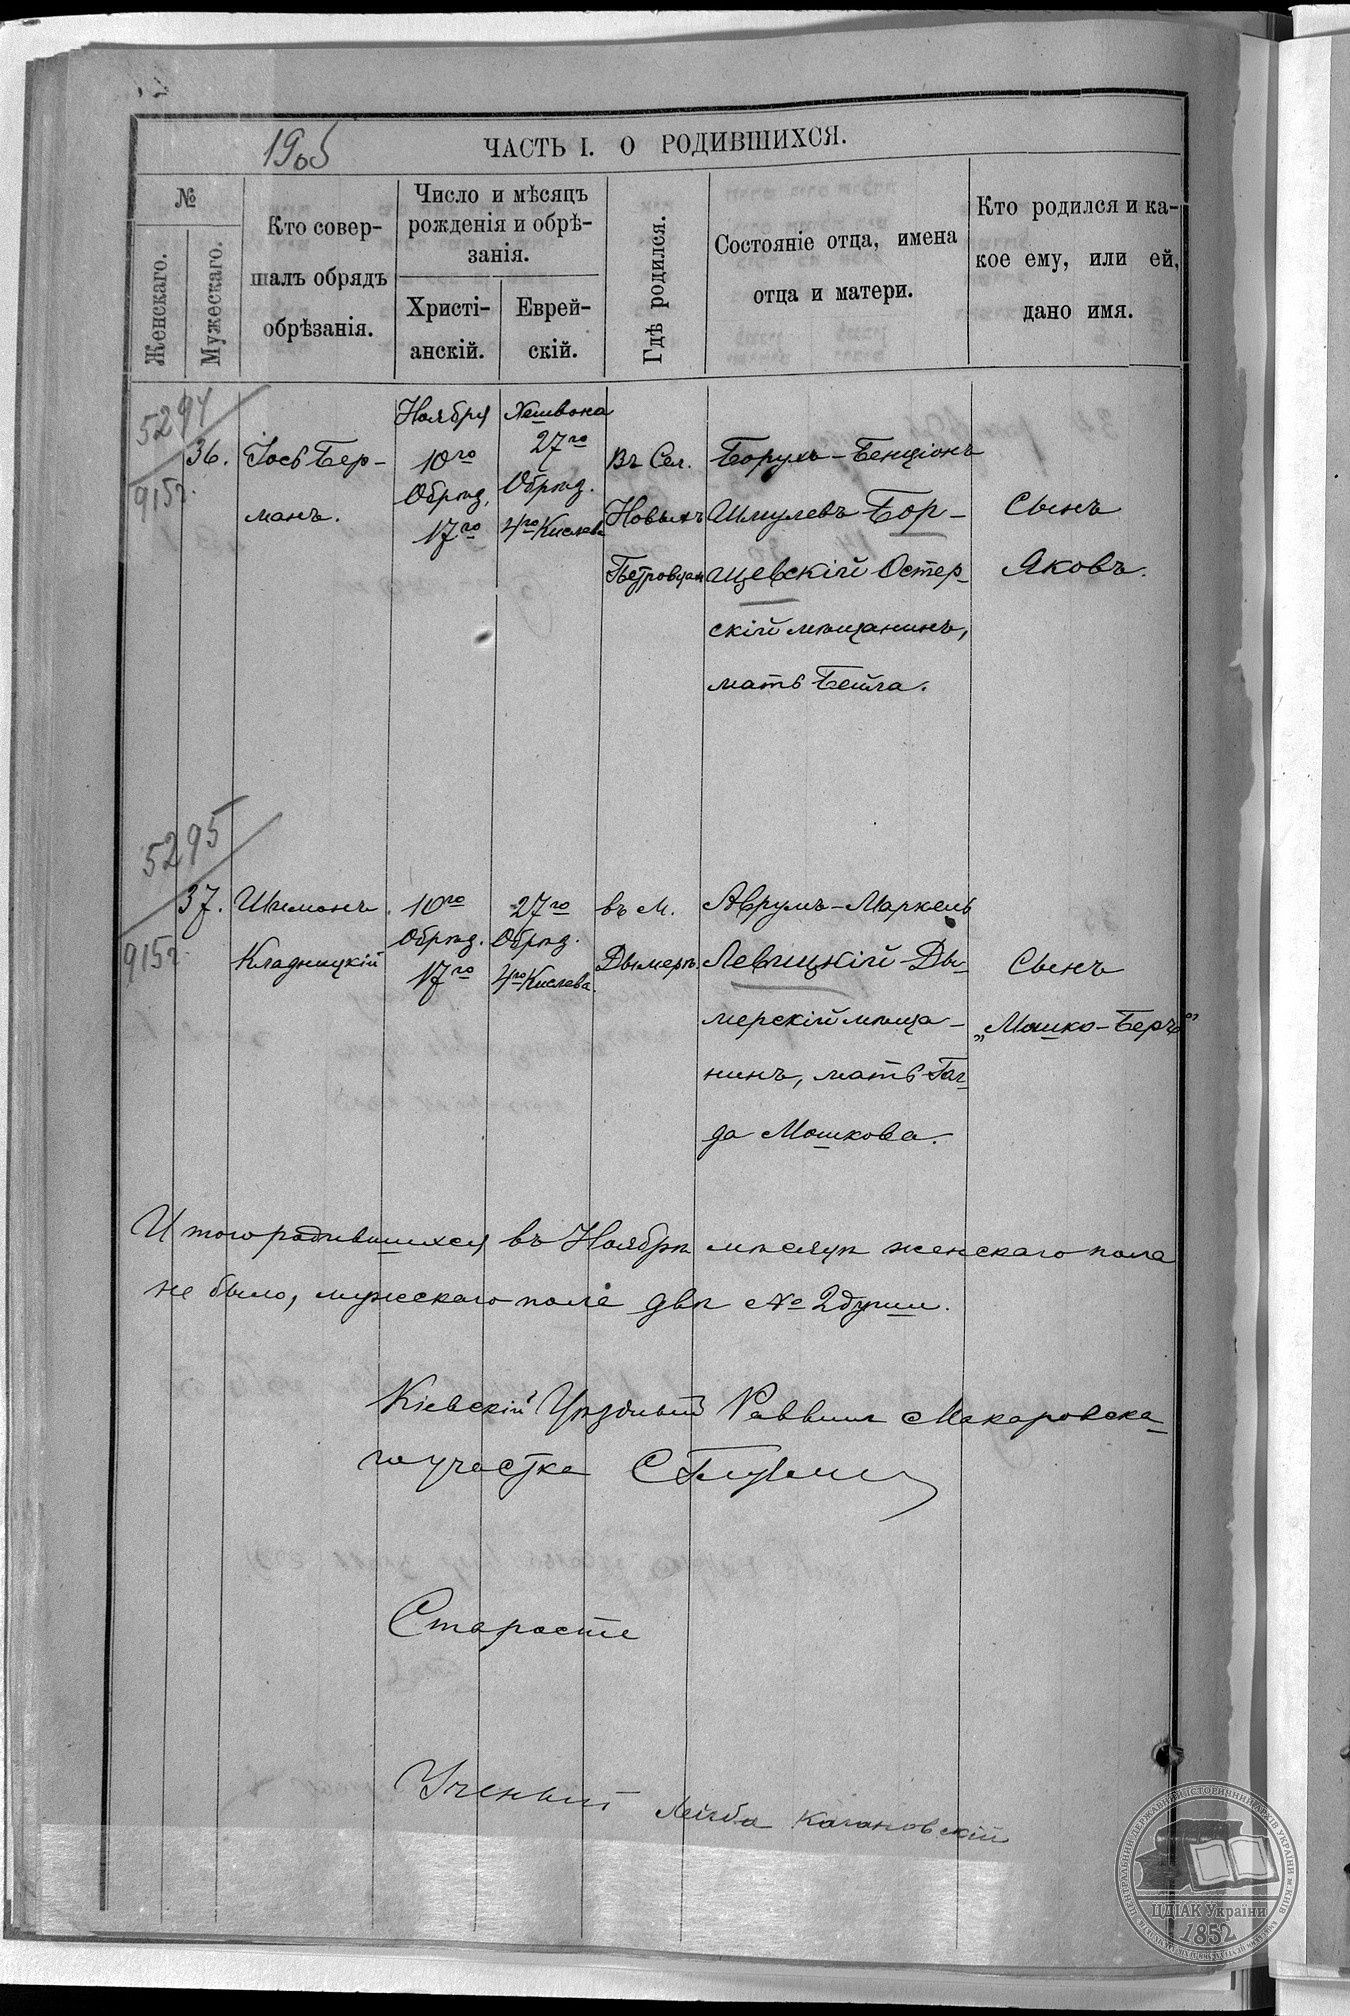 1905
ЧАСТЬ I. О РОДИВШИХСЯ.
№
Женскаго.
Мужескаго.
Кто совер-
шалъ обрядъ
обрѣзанія.
Число и мѣсяцъ
рожденія и обрѣ-
занія.
Христі-
анскій.
Еврей-
скій.
Гдѣ родился.
Состояніе отца, имена
отца и матери.
Кто родился и ка-
кое ему, или ей,
дано имя.
5294
915г.
36.
Іось Бер-
манъ.
Ноября
10го
Обрѣз.
17го
Хешвона
27го
Обрѣз.
4го Кислева
Въ Сел.
Новыхъ
Петровцахъ
Борухъ-Бенціонъ
Шмулевъ Бор-
щевскій Остер-
скій мѣщанинъ,
мать Бейла.
Сынъ
Яковъ.
5295
915г.
37.
Шимонъ
Кладницкій
10го
Обрѣз.
17го
27го
Обрѣз.
4го Кислева.
въ М.
Дымерѣ.
Аврумъ-Маркель
Левицкій Ды-
мерскій мѣща-
нинъ, мать Гол-
да Мошкова.
Сынъ
„Мошко-Беръ"
Итого родившихся въ Ноябрѣ мѣсяцѣ женскаго пола
не было, мужескаго пола двѣ № 2 души.
Кіевскій Уѣздный Раввинъ Макаровска-
го участка
Староста
Ученый Лейба Кагановскій
ЦЕНТРАЛЬНИЙ ДЕРЖАВНИЙ ІСТОРИЧНИЙ АРХІВ УКРАЇНИ м. КИЇВ
ЦДІАК України
1852